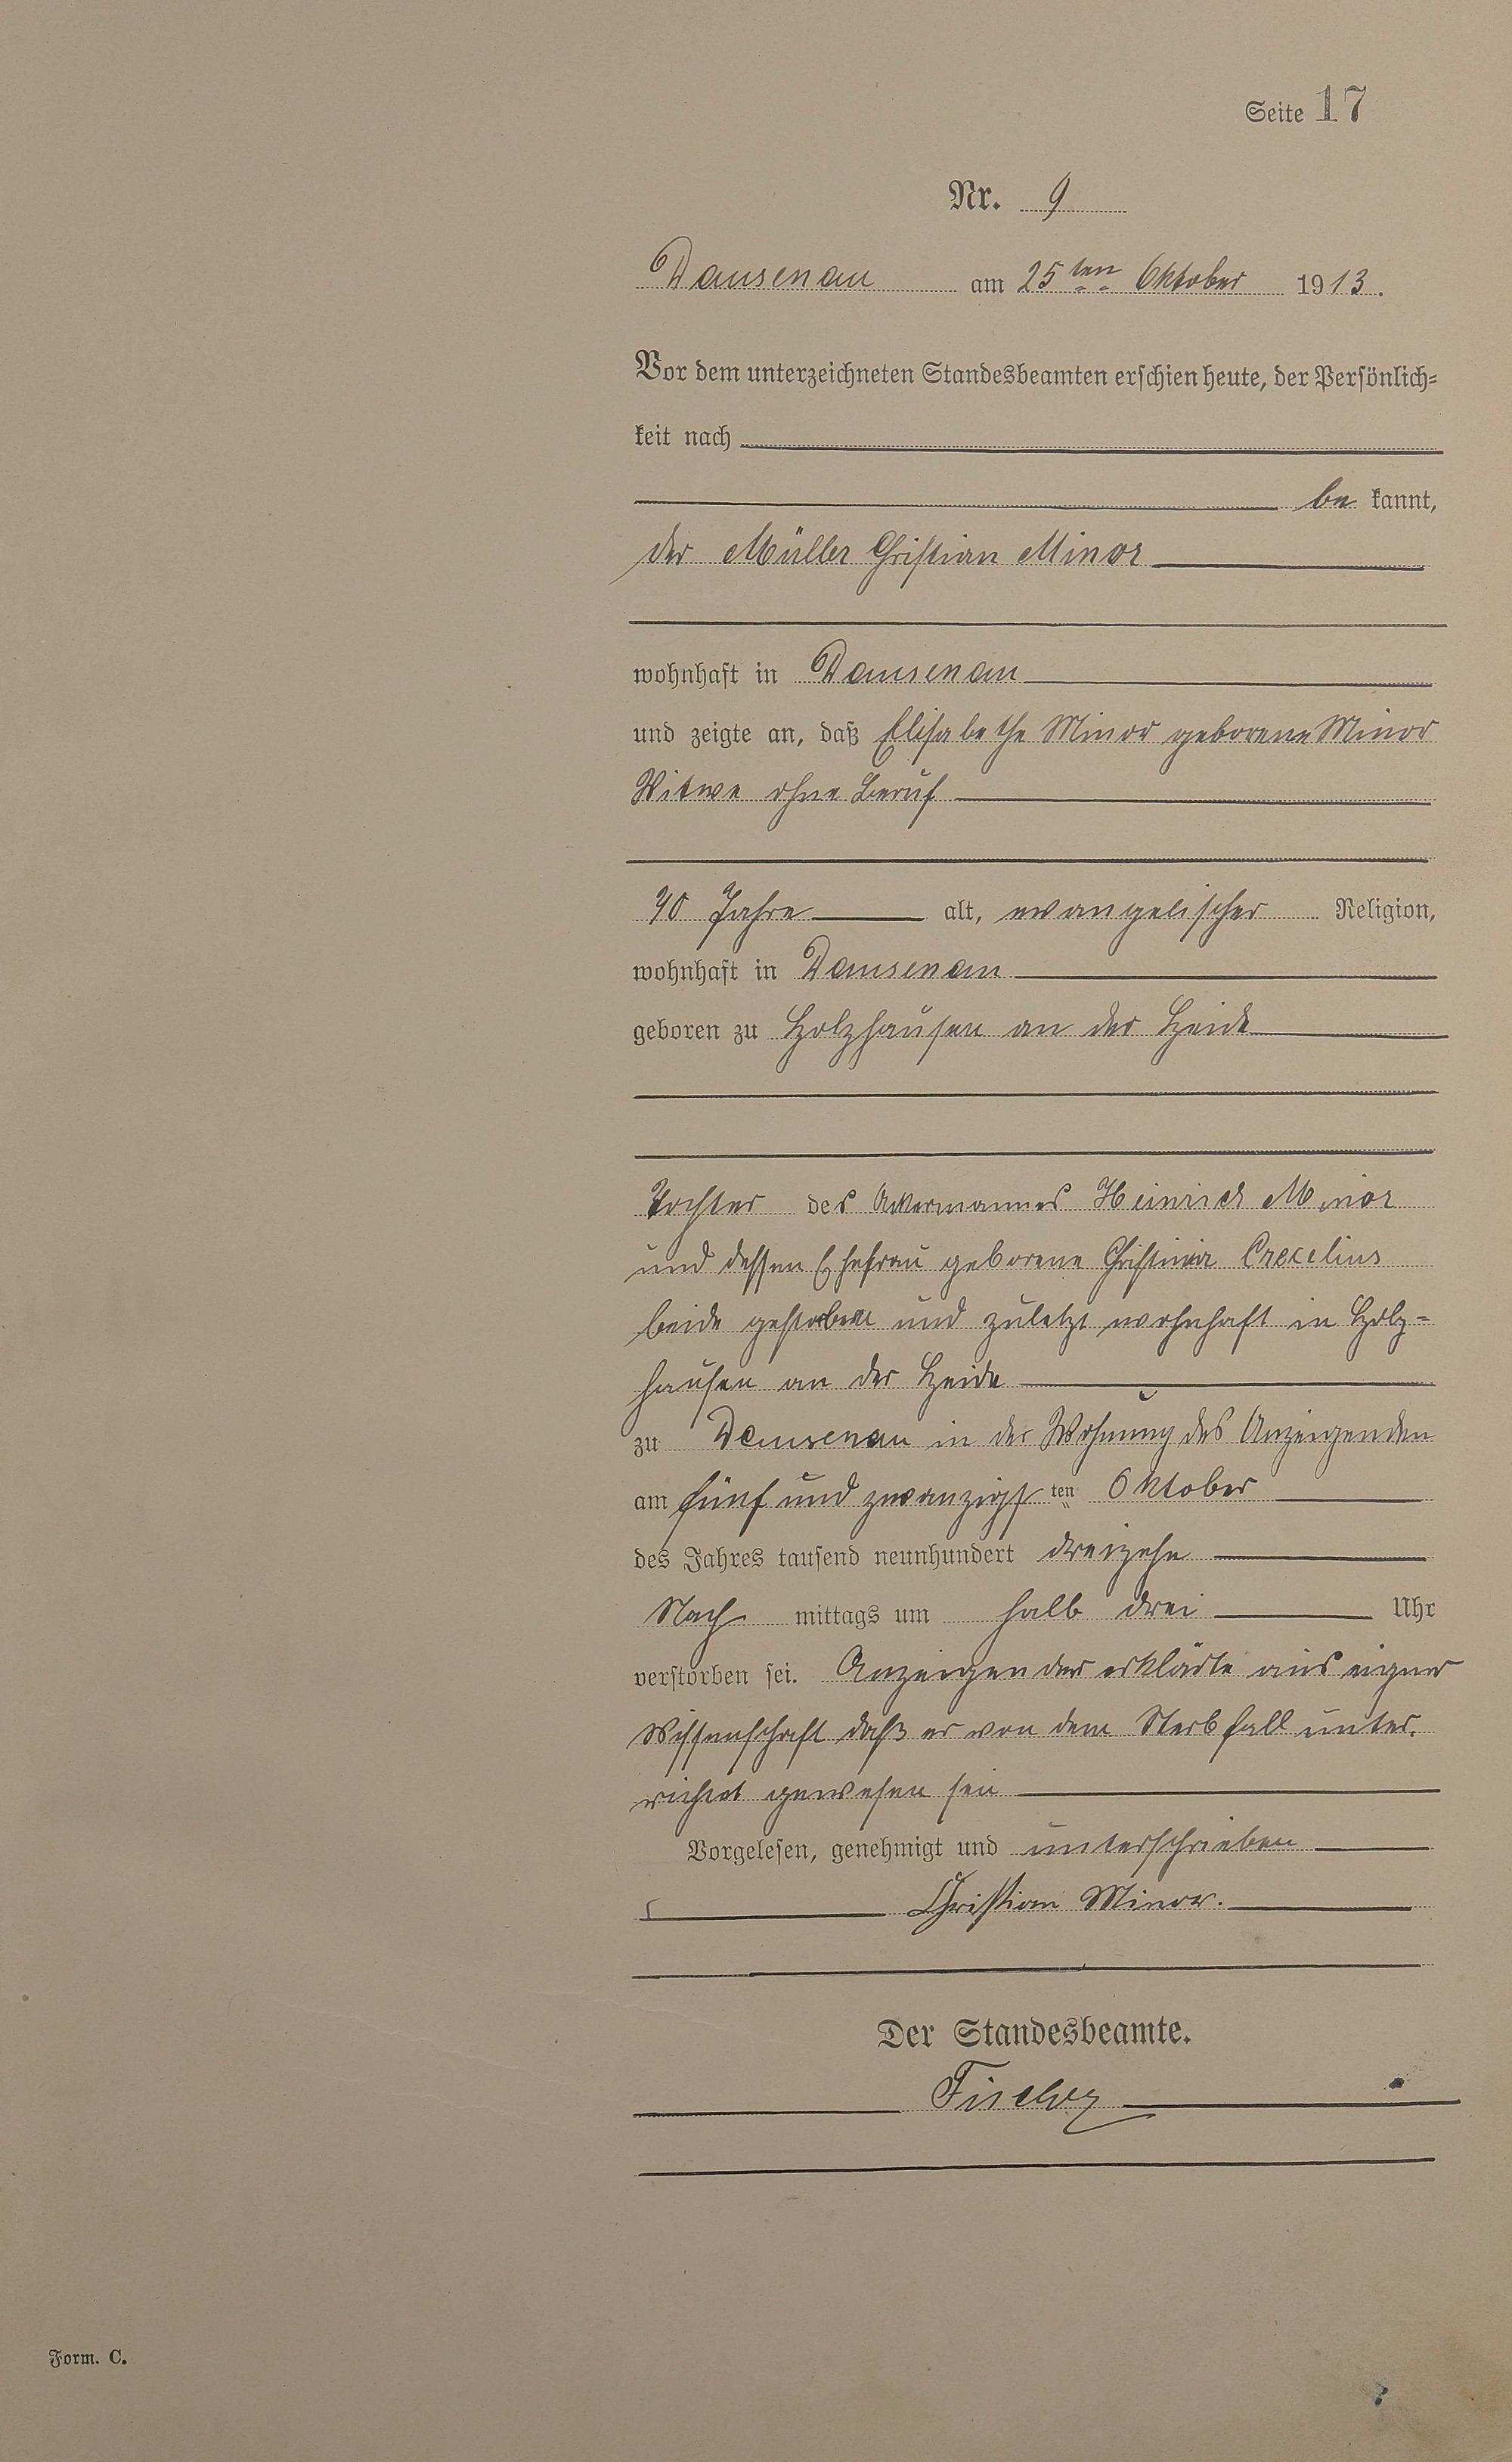 Seite 17
Nr. 9
Dausenau am 25ten Oktober 1913.
Vor dem unterzeichneten Standesbeamten erschien heute, der Persönlich=
keit nach
be kannt,
der Müller Christian Minor
wohnhaft in Dausenau
und zeigte an, daß Elisabethe Minor geborene Minor
Witwe ohne Beruf
70 Jahre alt, evangelischer Religion,
wohnhaft in Dausenau
geboren zu Holzhausen an der Heide
Tochter des Ackermannes Heinrich Minor
und dessen Ehefrau geborene Christina Crecelius
beide gestorben und zuletzt wohnhaft in Holz=
hausen an der Heide
zu Dausenau in der Wohnung des Anzeigenden
am fünf und zwanzigsten Oktober
des Jahres tausend neunhundert dreizehn
Nach mittags um halb drei Uhr
verstorben sei. Anzeigender erklärte aus eigner
Wissenschaft daß er von dem Sterbfall unter.
richtet gewesen sei
Vorgelesen, genehmigt und unterschrieben
Christian Minor.
Der Standesbeamte.
Fischer
Form. C.